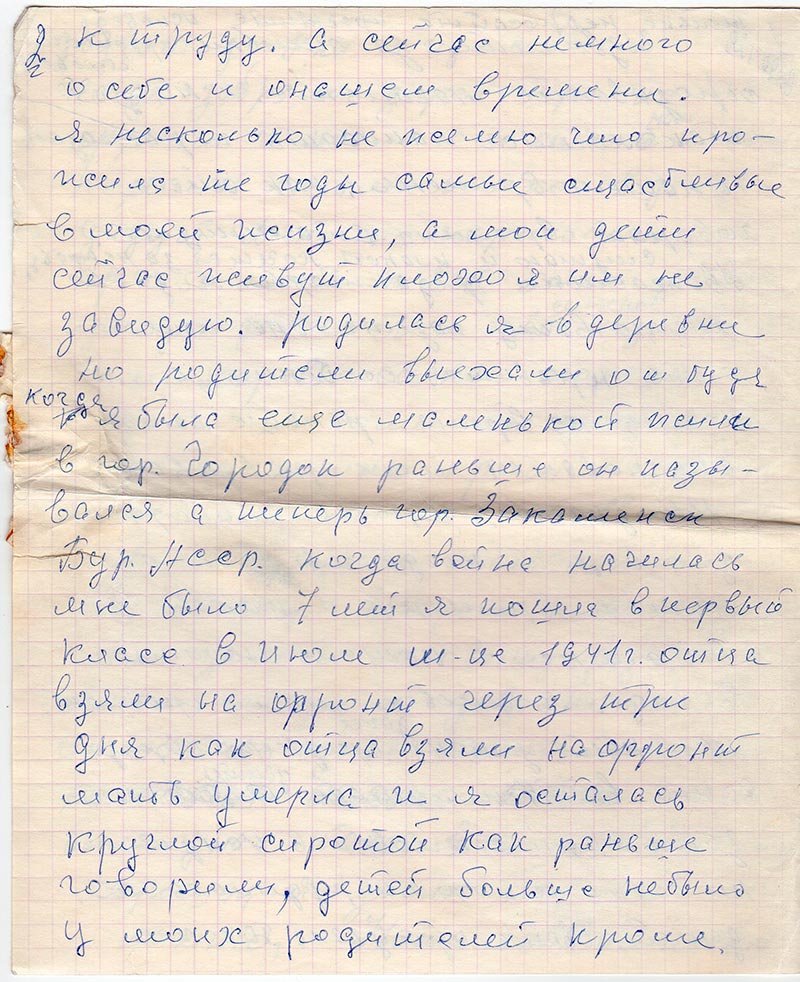 к труду. а сейчас немного
о себе и онашем времени.
я несколько не жемею что про-
жила те годы самые сщасбливые
в моей жизни, а мои дети
сейчас живут плохо я им не
завидую. родилась я в деревни
но родители выехали от туда
когда я была еще маленькой жили
в гор. Городок раньше он назы-
вался а теперь гор. Закаменск
Бур. Асср. когда война началась
мне было 7 лет я пошла в первый
класс в июле м-це 1941г. отца
взяли на фронт через три
дня как отца взяли на фронт
мать умерла и я осталась
круглой сиротой как раньше
говорили, детей больше небыло
у моих родителей кроме.